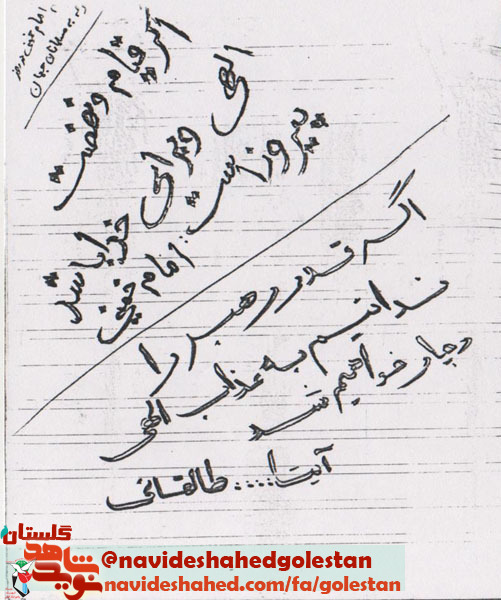 امام خمینی
رهبر مسلمانان جهان
اگر قیام و نهضت
الهی و برای خدا باشد
پیروز است
امام خمینی
اگر قدر رهبر را
ندانیم به عذاب الهی
دچار خواهیم شد
آیت ا..... طالقانی
گلستان
نوید شاهد
@navideshahedgolestan
navideshahed.com/fa/golestan